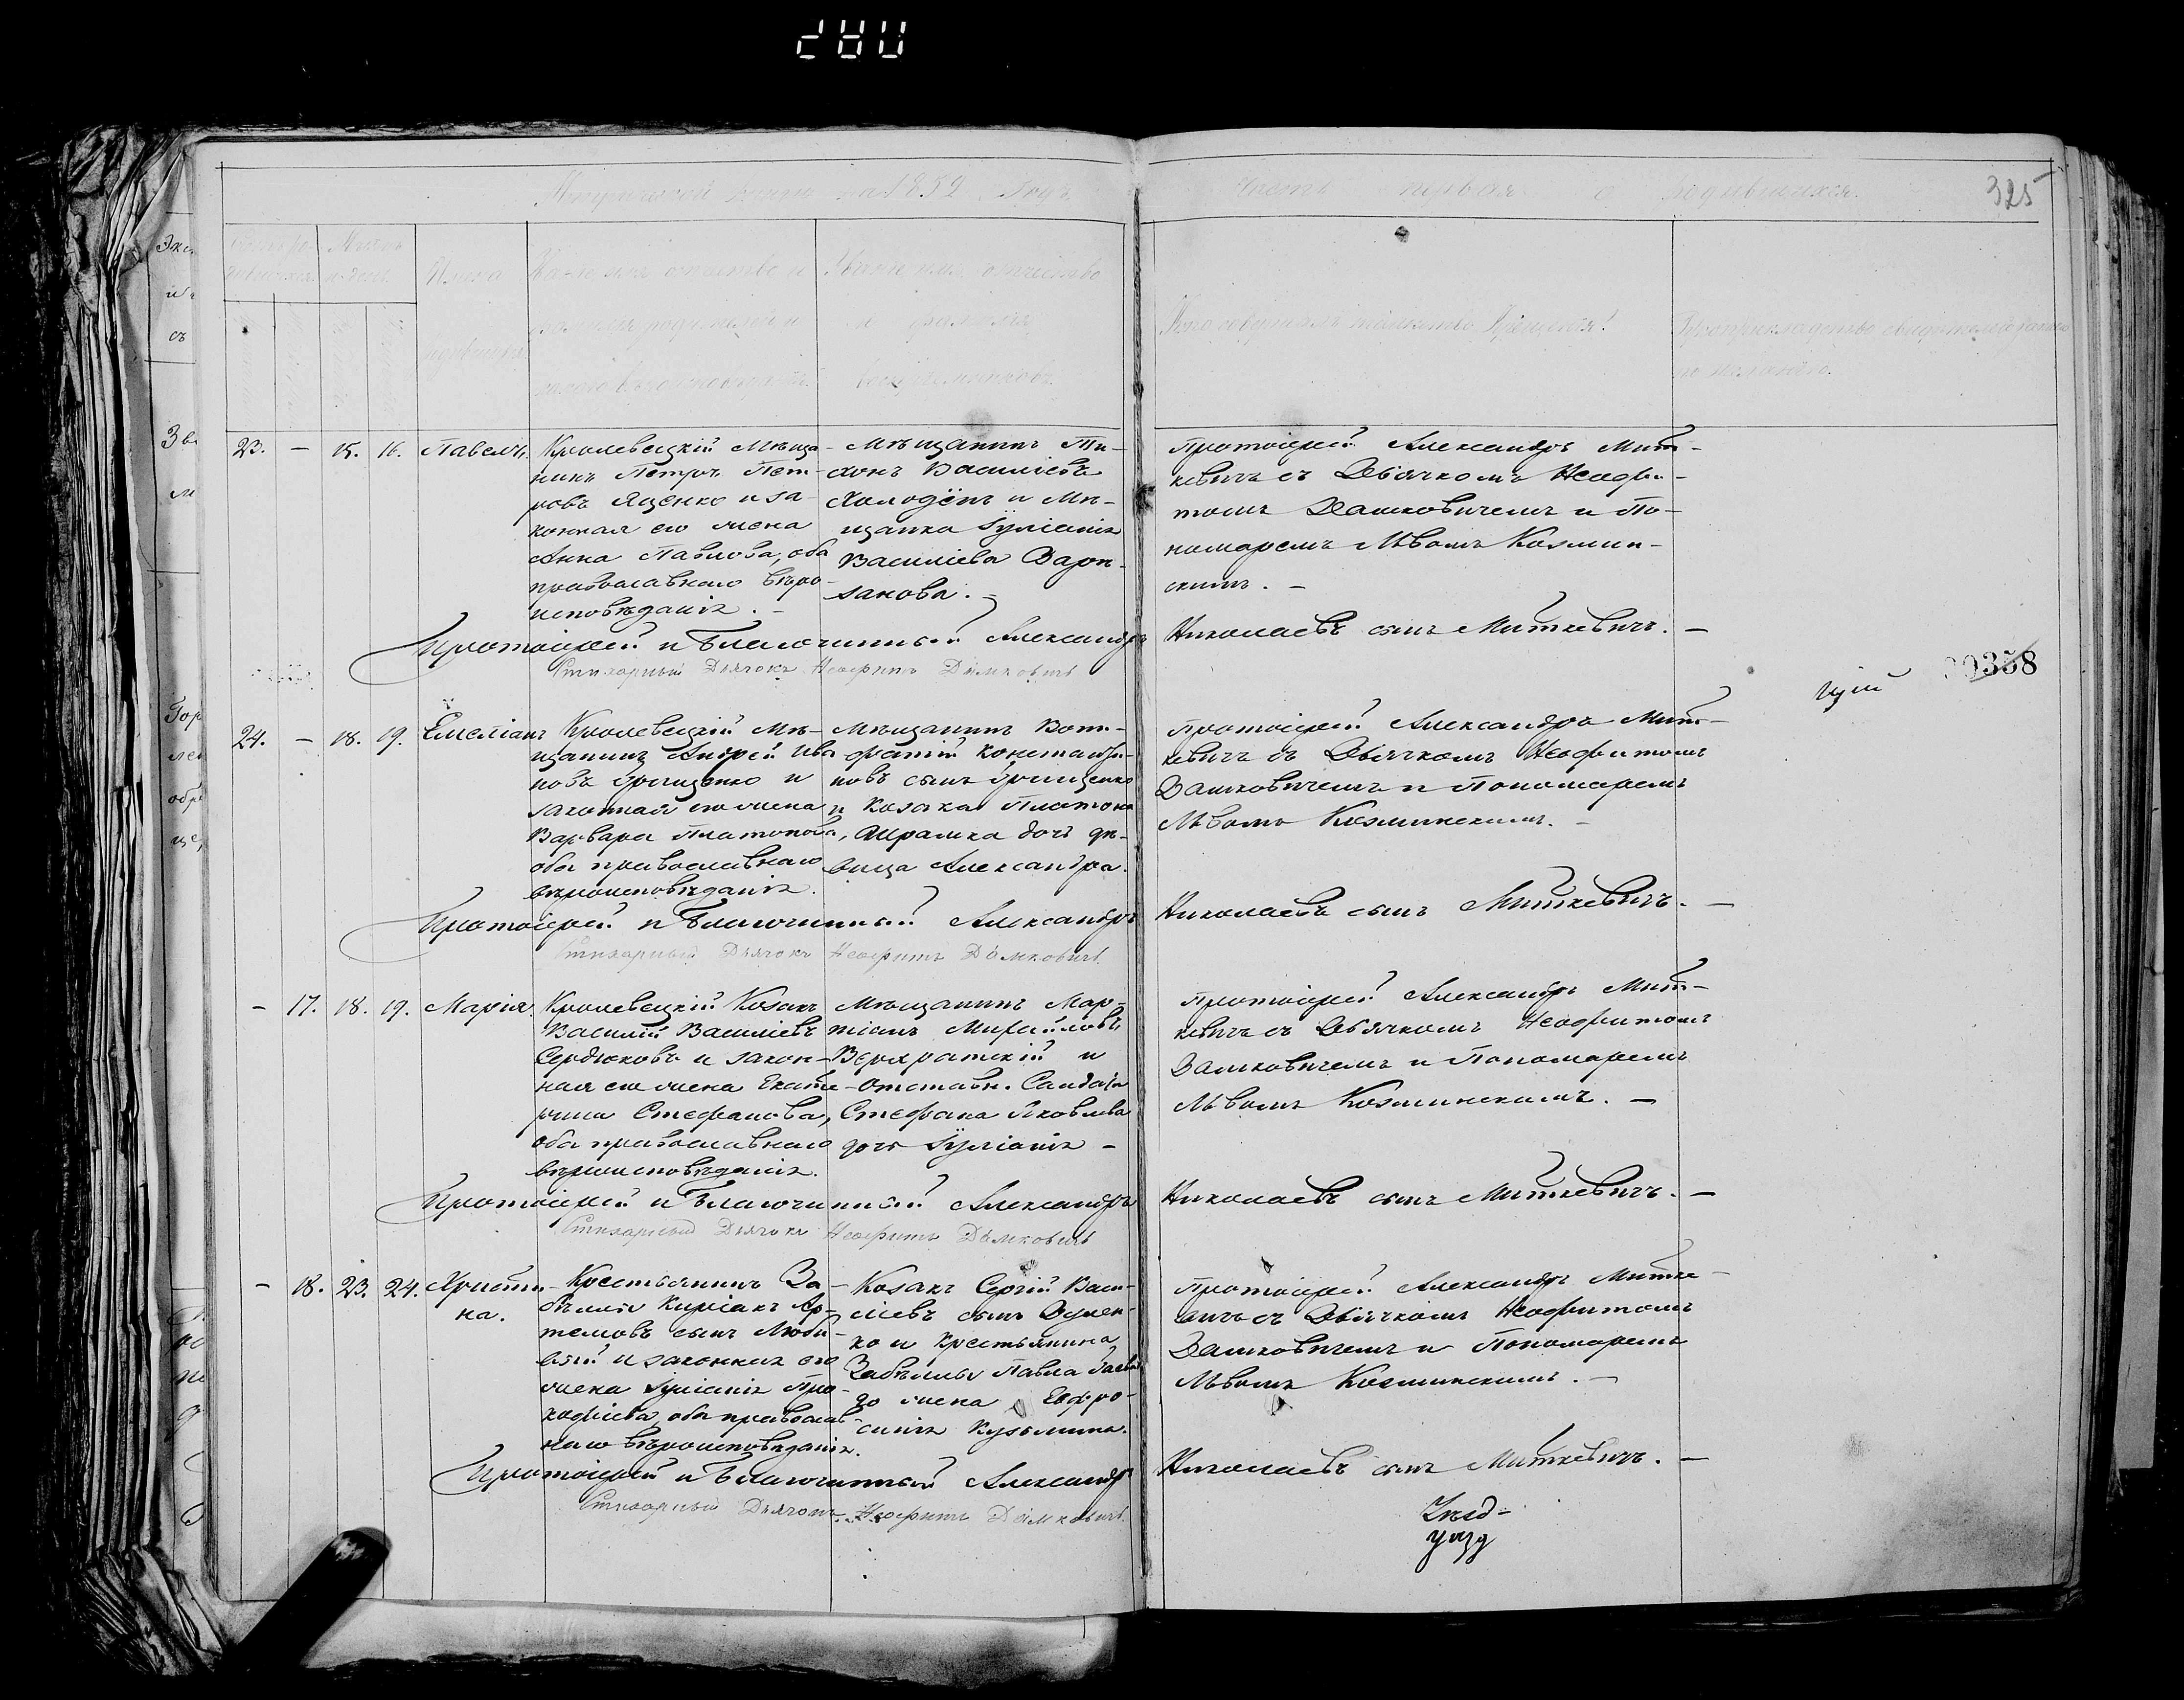 Метрической Книги на 1852 Годъ
Часть первая о родившихся.
325
Имена родившихся
Званіе имя отчество и фамилія родителей и какого вѣроисповѣданія
Званіе имя отчество и фамилія воспріемниковъ.
Кто совершалъ таинство Крещенія?
Рукоприкладство свидѣтелей записи по желанію.
23. — 15. 16. Павелъ.
Кролевецкій Мѣща-
нинъ Петръ Пет-
ровъ Яценко и за-
конная его жена
Анна Павлова, оба
православнаго вѣро-
исповѣданія. —
Мѣщанинъ Ти-
хонъ Василіевъ
Холодёнъ и Мѣ-
щанка Іуліанія
Василіева
Протоіерей Александръ Мит-
кевичъ съ Дьячкомъ Неофи-
томъ Дашковичемъ и По-
номаремъ Львомъ Козмин-
скимъ. —
Протоіерей и Благочинный Александръ Николаевъ сынъ Миткевичъ. —
Стихарный Дьячокъ Неофитъ Дашковичъ
358
24. — 18. 19. Емеліанъ
Кролевецкій Мѣ-
щанинъ Андрей Ива-
новъ Грищенко и
законная его жена
Варвара Платонова,
оба православнаго
вѣроисповѣданія.
Мѣщанинъ Вони-
фатій Константи-
новъ сынъ Грищенко
и Козака Платона
дочь дѣ-
вица Александра.
Протоіерей Александръ Мит-
кевичъ съ Дьячкомъ Неофитомъ
Дашковичемъ и Пономаремъ
Львомъ Козминскимъ. —
Протоіерей и Благочинный Александръ Николаевъ сынъ Миткевичъ. —
Стихарный Дьячокъ Неофитъ Дашковичъ.
— 17. 18. 19. Марія.
Кролевецкій Козакъ
Василій Василіевъ
Сердюковъ и закон-
ная его жена Екате-
рина Стефанова,
оба православнаго
вѣроисповѣданія.
Мѣщанинъ Мар-
тіанъ Михайловъ
Верхратскій и
отставн. Салдата
Стефана Яковлева
дочь Іуліанія —
Протоіерей Александръ Мит-
кевичъ съ Дьячкомъ Неофитомъ
Дашковичемъ и Пономаремъ
Львомъ Козминскимъ. —
Протоіерей и Благочинный Александръ Николаевъ сынъ Миткевичъ. —
Стихарный Дьячокъ Неофитъ Дашковичъ
— 18. 23. 24. Христи-
на.
Крестьянинъ За-
бѣлы Киріакъ Ар-
темовъ сынъ Люби-
вый и законная его
жена Іуліанія Про-
кофіева, оба православ-
наго вѣроисповѣданія.
Козакъ Сергій Васи-
ліевъ сынъ Думен-
ко и Крестьянина
Забѣлы Павла
жена Евфро-
синія Кузьмина.
Протоіерей Александръ Митке-
вичъ съ Дьячкомъ Неофитомъ
Дашковичемъ и Пономаремъ
Львомъ Козминскимъ. —
Протоіерей и Благочинный Александръ Николаевъ сынъ Миткевичъ. —
Стихарный Дьячокъ Неофитъ Дашковичъ.